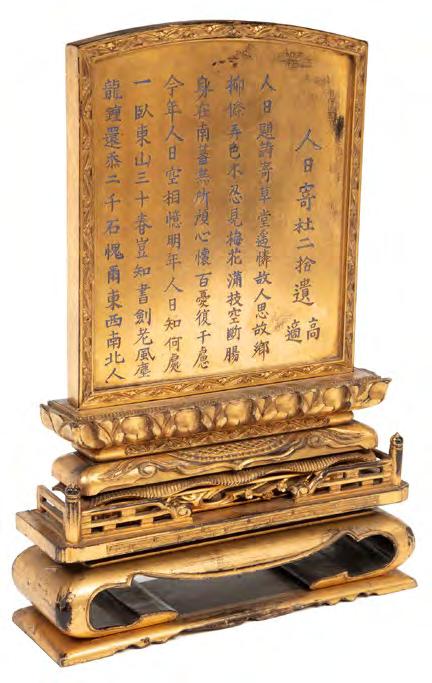 人日寄杜二拾遺
高適
人日題詩寄草堂遙憐故人思故鄉
柳條弄色不忍見梅花滿枝空断腸
身在南蕃無所預心懷百憂復千慮
今年人日空相憶明年人日知何處
一臥東山三十春豈知書劍老風塵
龍鐘還忝二千石愧爾東西南北人